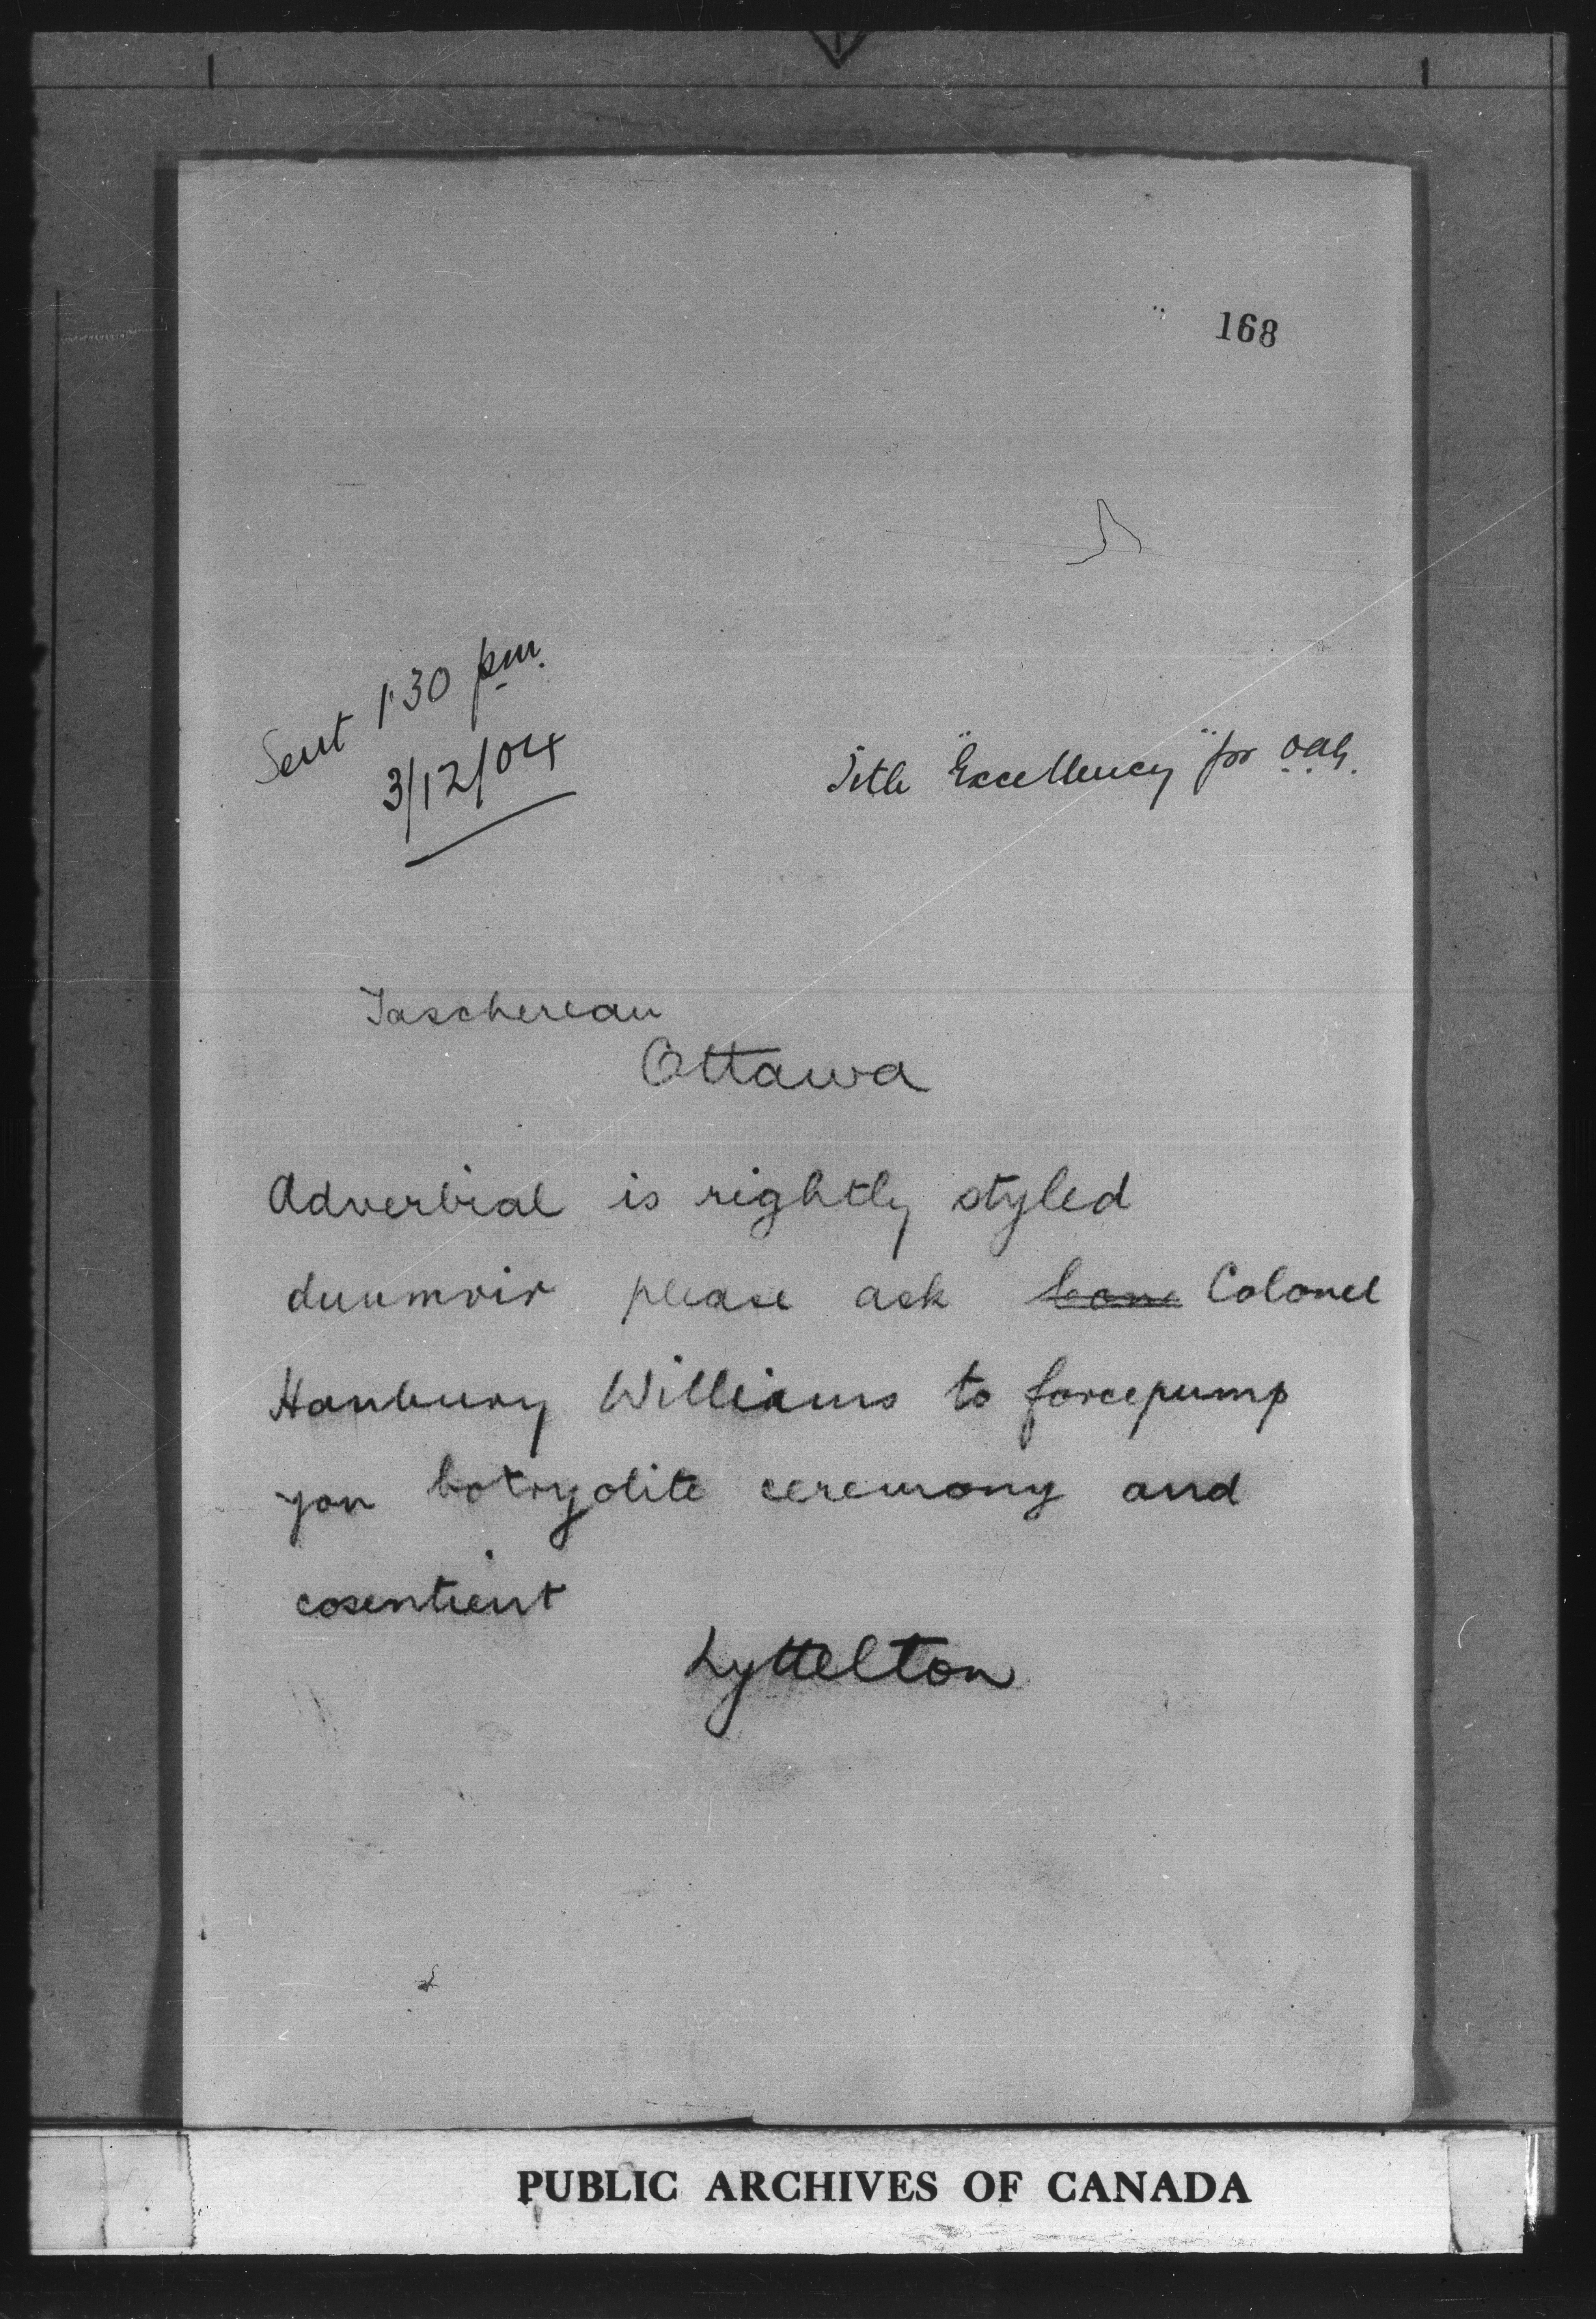 168
Sent 1.30 pm.
3/12/04
Title "Excellency" for O.A.G.
Taschereau
Ottawa
Adverbial is rightly styled
dunmoir please ask Colonel
Hanbury Williams to forcepump
you botryolite ceremony and
cosentient
Lyttelton
PUBLIC ARCHIVES OF CANADA